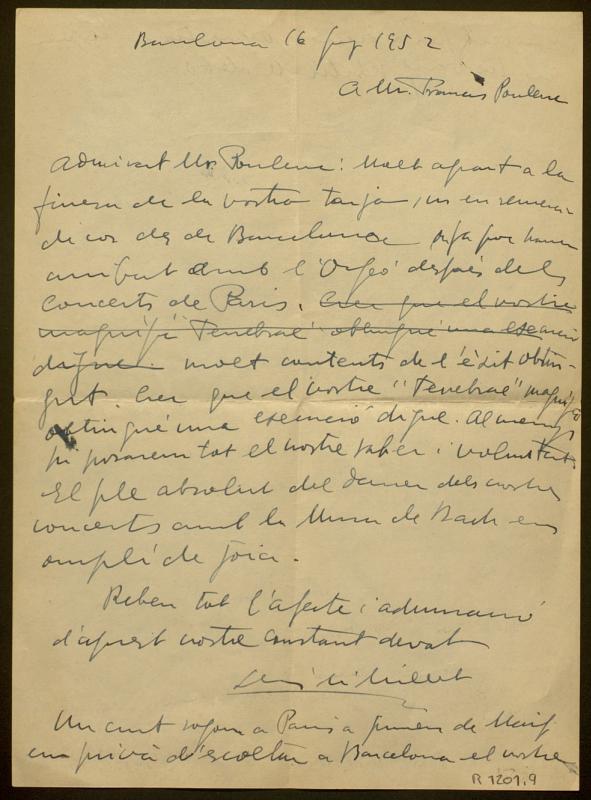 Barcelona 16 1952
A Mr. Francis Poulenc
Admirat Mr. Poulenc: Molt apart a la
finesa de la vostra
de Barcelona
arribat amb l'Orfeó després dels
concerts de Paris. Crec que el vostre
magnífi Tenebrae obtingué una execució
digne. molt contents de l'éxit obtin-
gut. Crec que el vostre "Tenebrae" magnífic
obtingué una execució digne. Al menys
hi posarem tot el nostre saber i voluntat.
El ple absolut del darrer dels nostres
concerts amb la Missa de Bach ens
omplí de joia.
Reben tot l'afecte i admiració
d'aquest vostre constant devot
Lluís Mª Millet
Un curt a Paris a de Maig
em privà d'escoltar a Barcelona el vostre
R 1201,9